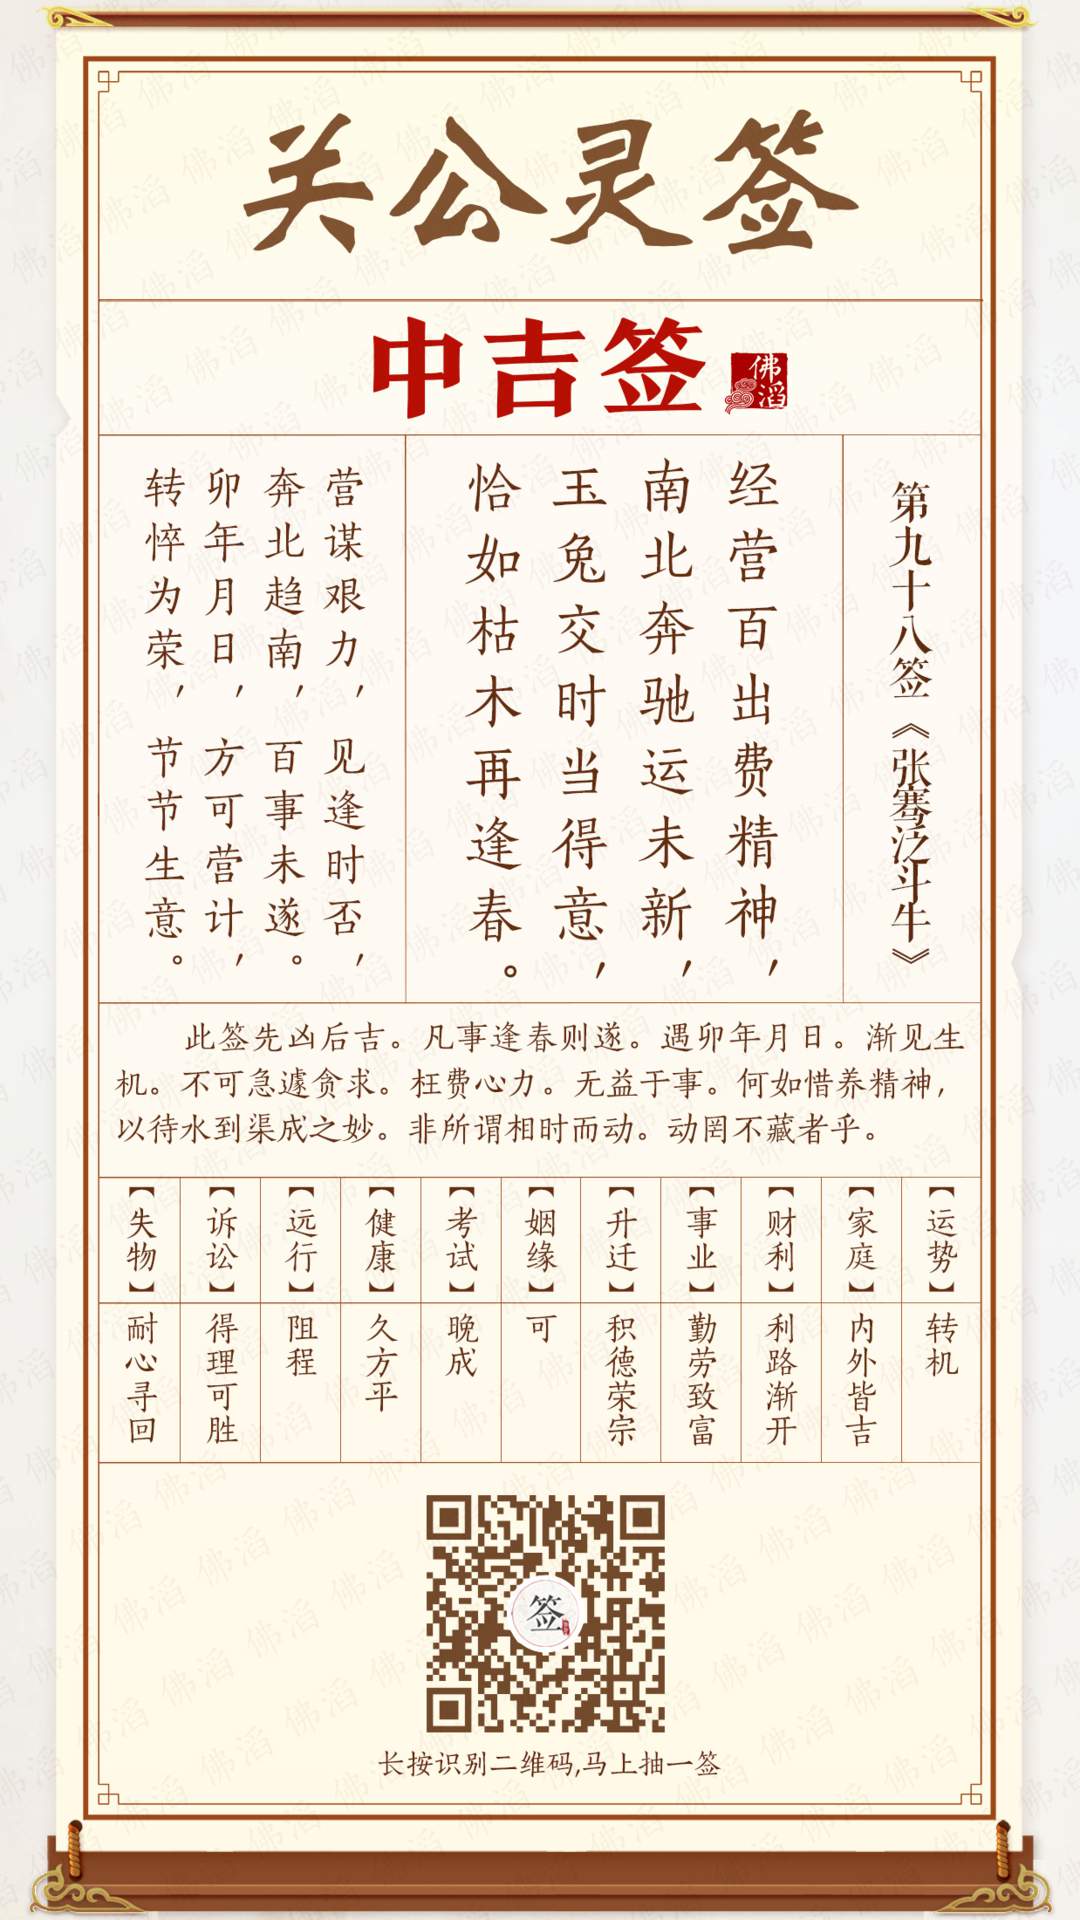 关公灵签
中吉签
佛滔
第九十八签《张骞泛斗牛》
经营百出费精神，
南北奔驰运未新，
玉兔交时当得意，
恰如枯木再逢春。
营谋艰力，见逢时否，
奔北趋南，百事未遂。
卯年月日，方可营计，
转悴为荣，节节生意。
此签先凶后吉。凡事逢春则遂。遇卯年月日。渐见生
机。不可急遽贪求。枉费心力。无益于事。何如惜养精神，
以待水到渠成之妙。非所谓相时而动。动罔不藏者乎。
【运势】
转机
【家庭】
内外皆吉
【财利】
利路渐开
【事业】
勤劳致富
【升迁】
积德荣宗
【姻缘】
可
【考试】
晚成
【健康】
久方平
【远行】
阻程
【诉讼】
得理可胜
【失物】
耐心寻回
签
长按识别二维码,马上抽一签